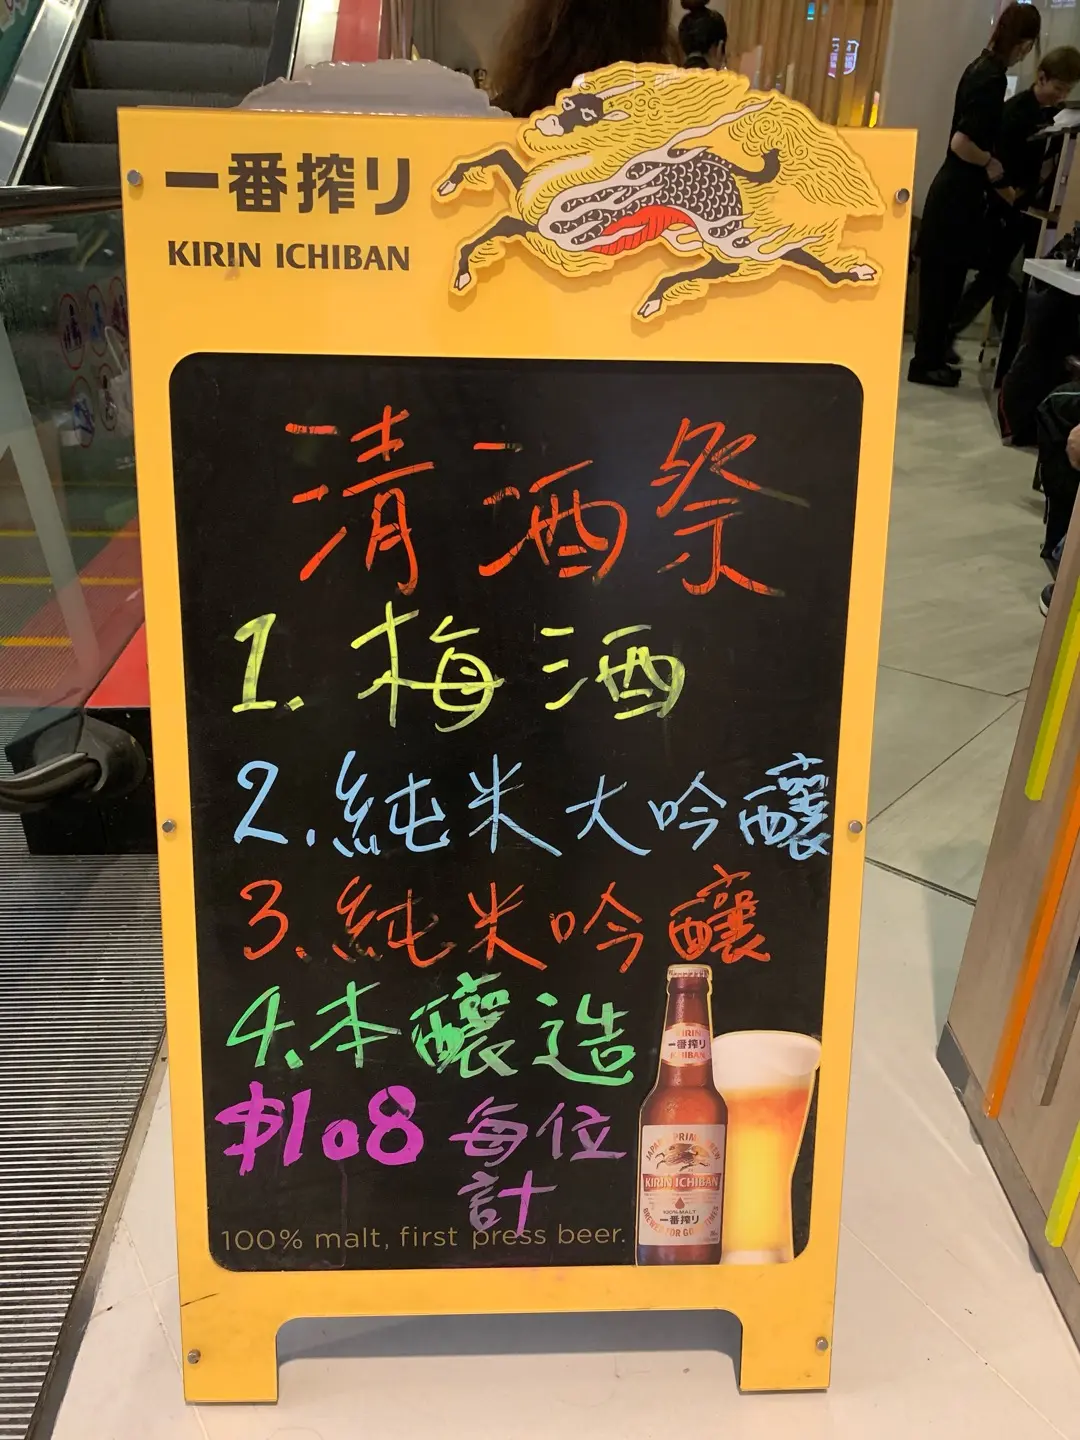 一番搾り
KIRIN ICHIBAN
清酒祭
1. 梅酒
2. 純米大吟釀
3. 純米吟釀
4. 本釀造
$108 每位
計
100% malt, first press beer.
KIRIN
一番搾り
ICHIBAN
KIRIN ICHIBAN
100% MALT
一番搾り